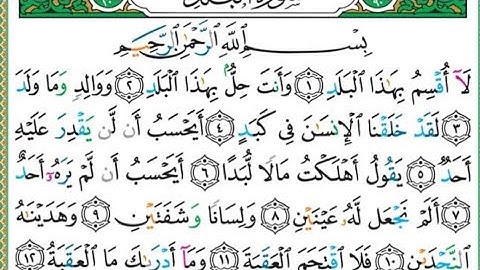 سورة البلد
بِسْمِ ٱللَّهِ ٱلرَّحْمَٰنِ ٱلرَّحِيمِ
لَآ أُقْسِمُ بِهَٰذَا ٱلْبَلَدِ ١ وَأَنتَ حِلٌّۢ بِهَٰذَا ٱلْبَلَدِ ٢ وَوَالِدٍ وَمَا وَلَدَ
٣ لَقَدْ خَلَقْنَا ٱلْإِنسَٰنَ فِى كَبَدٍ ٤ أَيَحْسَبُ أَن لَّن يَقْدِرَ عَلَيْهِ
أَحَدٌ ٥ يَقُولُ أَهْلَكْتُ مَالًا لُّبَدًا ٦ أَيَحْسَبُ أَن لَّمْ يَرَهُۥٓ أَحَدٌ
٧ أَلَمْ نَجْعَل لَّهُۥ عَيْنَيْنِ ٨ وَلِسَانًا وَشَفَتَيْنِ ٩ وَهَدَيْنَٰهُ
ٱلنَّجْدَيْنِ ١٠ فَلَا ٱقْتَحَمَ ٱلْعَقَبَةَ ١١ وَمَآ أَدْرَىٰكَ مَا ٱلْعَقَبَةُ ١٢